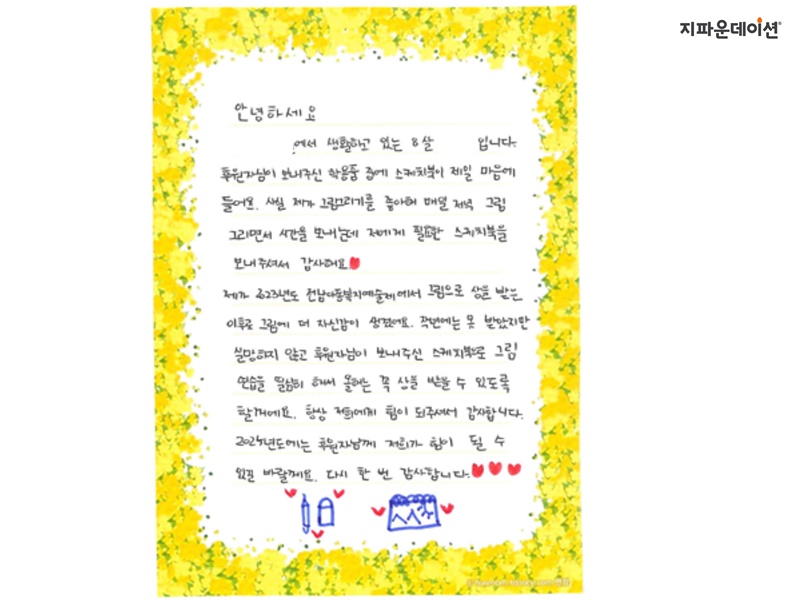 지파운데이션
안녕하세요
에서 생활하고 있는 8살 입니다.
후원자님이 보내주신 학용품 중에 스케치북이 제일 마음에
들어요. 사실 제가 그림그리기를 좋아해 매일 저녁 그림
그리면서 시간을 보내는데 저에게 필요한 스케치북을
보내주셔서 감사해요
제가 2023년도 전남아동복지예술제에서 그림으로 상을 받은
이후로 그림에 더 자신감이 생겼어요. 작년에는 못 받았지만
실망하지 않고 후원자님이 보내주신 스케치북으로 그림
연습을 열심히 해서 올해는 꼭 상을 받을 수 있도록
할꺼에요. 항상 저희에게 힘이 되주셔서 감사합니다.
2025년도에는 후원자님께 저희가 힘이 될 수
있길 바랄께요. 다시 한 번 감사합니다.